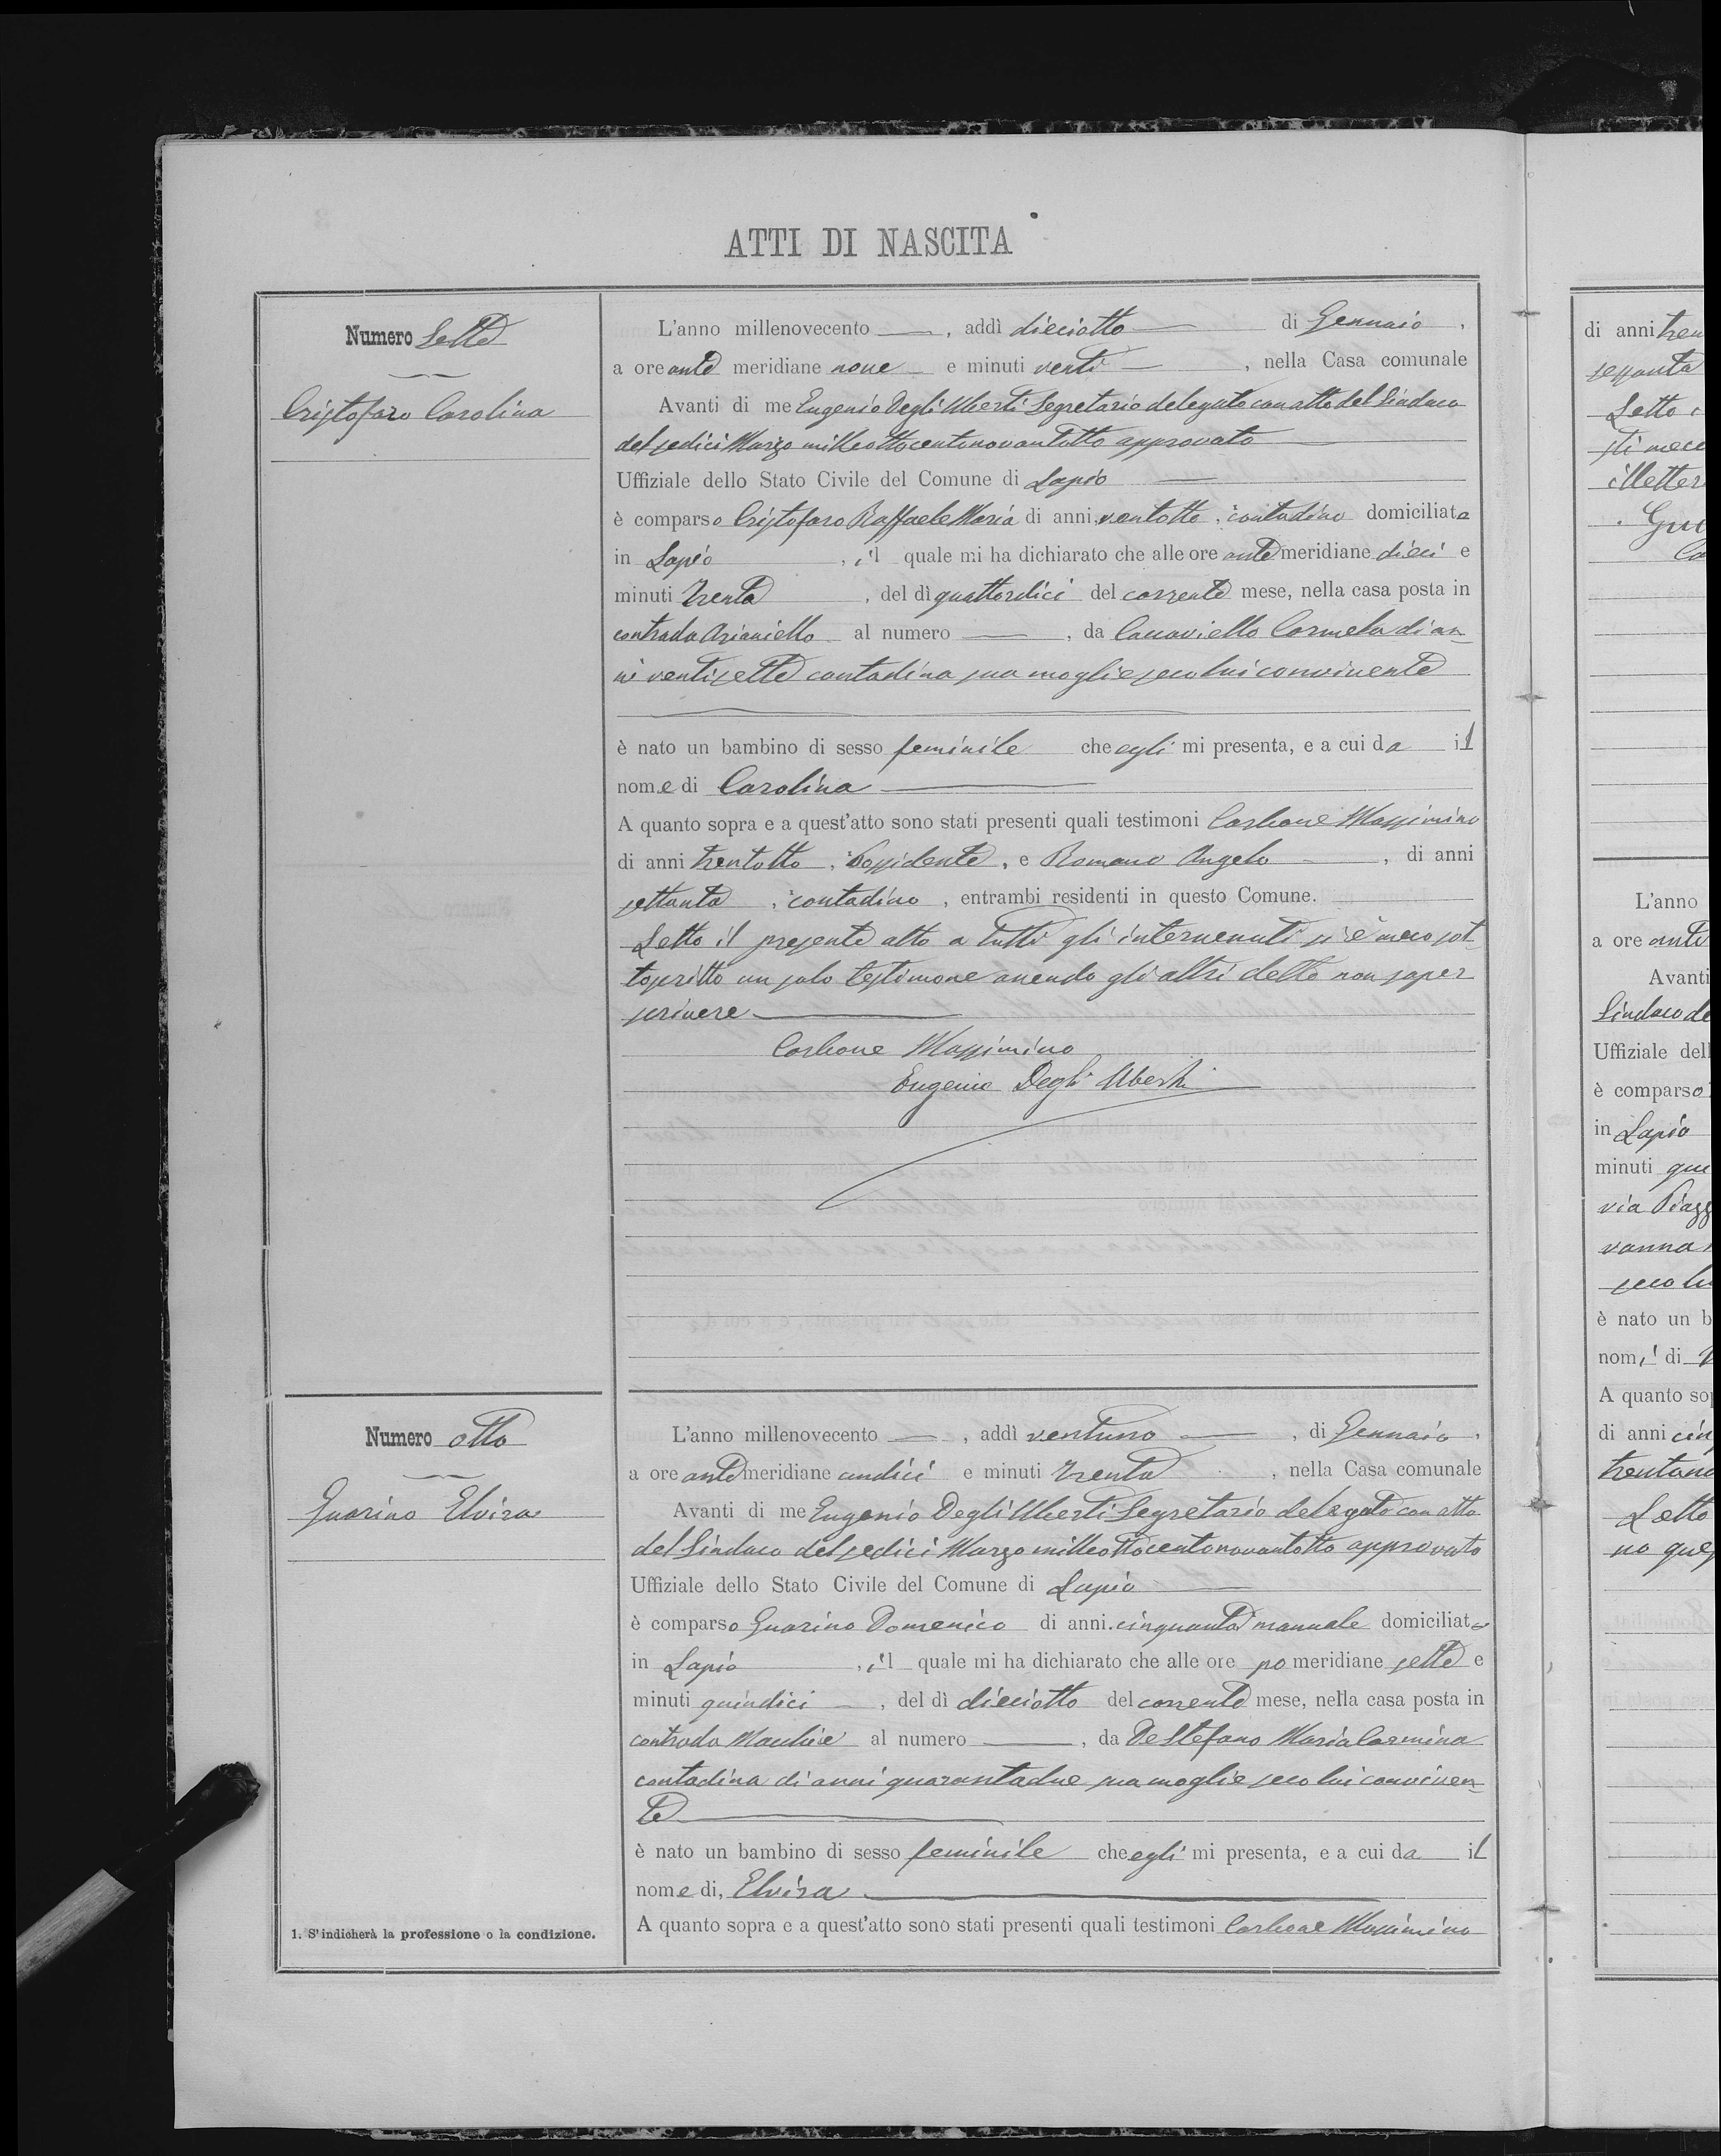 ATTI DI NASCITA
Numero Sette
Cristofaro Carolina
L'anno millenovecento —, addì dieciotto — di Gennaio,
a ore ante meridiane nove e minuti venti —, nella Casa comunale
Avanti di me Eugenio Degli Uberti Segretario delegato con atto del Sindaco
del sedici Marzo milleottocentonovantotto approvato
Uffiziale dello Stato Civile del Comune di Lapio —
è comparso Cristofaro Raffaele Maria di anni ventotto, contadino domiciliato
in Lapio, il quale mi ha dichiarato che alle ore ante meridiane dieci e
minuti trenta, del dì quattordici del corrente mese, nella casa posta in
contrada Arianiello al numero —, da Carmela di an-
ni ventisette contadina sua moglie seco lui convivente
è nato un bambino di sesso feminile che egli mi presenta, e a cui da il
nome di Carolina —
A quanto sopra e a quest'atto sono stati presenti quali testimoni Carbone Massimino
di anni trentotto, Possidente, e Romano Angelo —, di anni
settanta, contadino, entrambi residenti in questo Comune.
Letto il presente atto a tutti gli intervenuti si è meco sot-
toscritto un solo testimone avendo gli altri detto non saper
scrivere —
Carbone Massimino
Eugenio Degli Uberti
Numero otto
Guarino Elvira
L'anno millenovecento —, addì ventuno —, di Gennaio,
a ore ante meridiane undici e minuti trenta, nella Casa comunale
Avanti di me Eugenio Degli Uberti Segretario delegato con atto
del Sindaco del sedici Marzo milleottocentonovantotto approvato
Uffiziale dello Stato Civile del Comune di Lapio
è comparso Guarino Domenico di anni cinquanta manuale domiciliato
in Lapio, il quale mi ha dichiarato che alle ore po meridiane sette e
minuti quindici —, del dì dieciotto del corrente mese, nella casa posta in
contrada al numero —, da De Stefano Maria Carmina
contadina di anni quarantadue sua moglie seco lui conviven-
te —
è nato un bambino di sesso feminile che egli mi presenta, e a cui da il
nome di, Elvira —
A quanto sopra e a quest'atto sono stati presenti quali testimoni Carbone Massimino
1. S'indicherà la professione o la condizione.
di anni tren
sessanta
Letto
sti meco
illetter
Gu
Ca
L'anno
a ore ante
Avanti
Sindaco de
Uffiziale dell
è comparso
in Lapio
minuti qu
via Piazz
vanna
seco lu
è nato un b
nomi di
A quanto sop
di anni cin
trentano
Letto
no ques